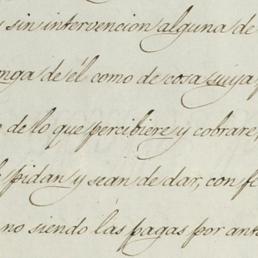 y sin intervencion alguna de
nga de él como de cosa suya p
de lo que percibiere y cobrare,
pidan y sean de dar, con f
no siendo las pagas por ant